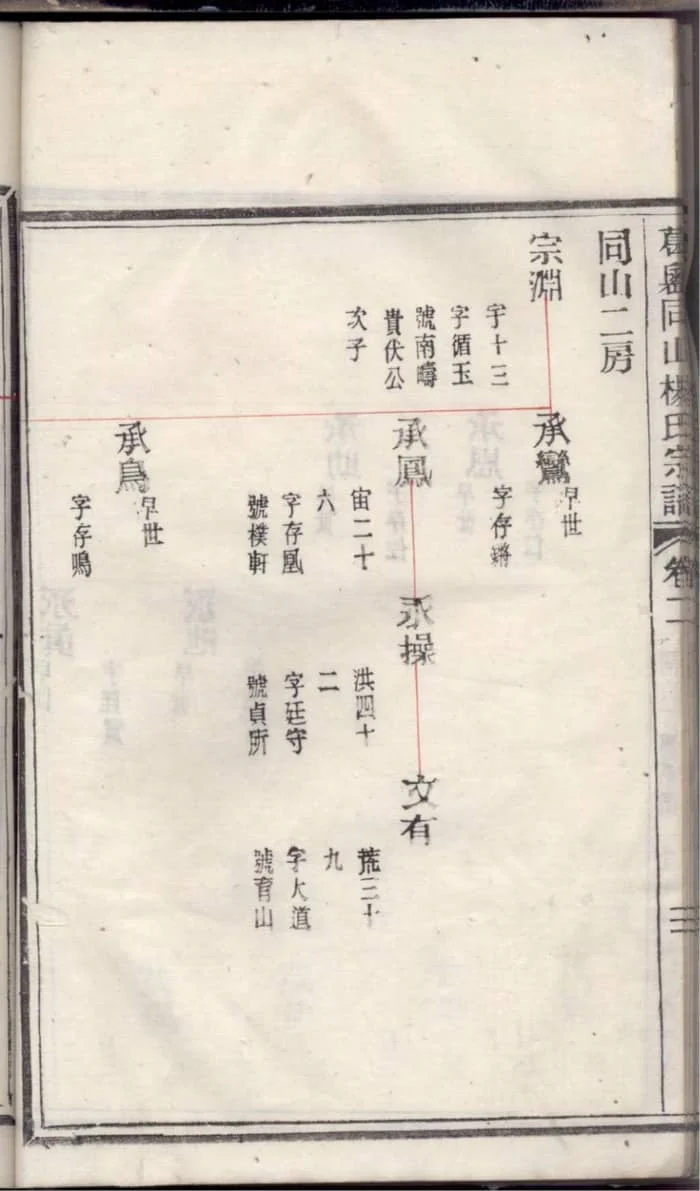 同山楊氏宗譜
卷二
三
同山二房
宗淵
宇十三
字循玉
號南疇
貴伏公
次子
承鸞
早世
字存鏘
承鳳
宙二十
六
字存凰
號樸軒
永操
洪四十
二
字廷守
號貞所
文有
荒三十
九
字大道
號育山
承鳥
早世
字存鳴